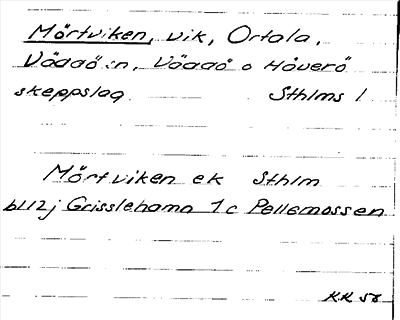 Mörtviken, vik, Ortala,
Väddö sn, Väddö o Häverö
skeppslag. Sthlms l
Mörtviken ek Sthlm
bl 12j Grisslehamn 1c Pellemossen
KK 58